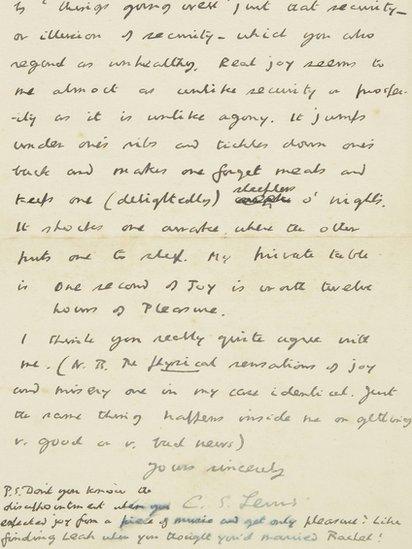 by "things going well" just that security–
or illusion of security – which you also
regard as unhealthy. Real joy seems to
me almost as unlike security or prosper-
-ity as it is unlike agony. It jumps
under one's ribs and tickles down one's
back and makes one forget meals and
keeps one (delightedly) sleepless o' nights.
It shocks one awake, where the other
puts one to sleep. My private table
is One second of Joy is worth twelve
hours of Pleasure.
I think you really quite agree with
me. (N.B. The physical sensations of joy
and misery are in my case identical. Just
the same thing happens inside me on getting
v. good or v. bad news)
Yours sincerely
C. S. Lewis
P.S. Don't you know the
disappointment when you
expected joy from a piece of music and get only pleasure? Like
finding Leah when you thought you'd married Rachel!